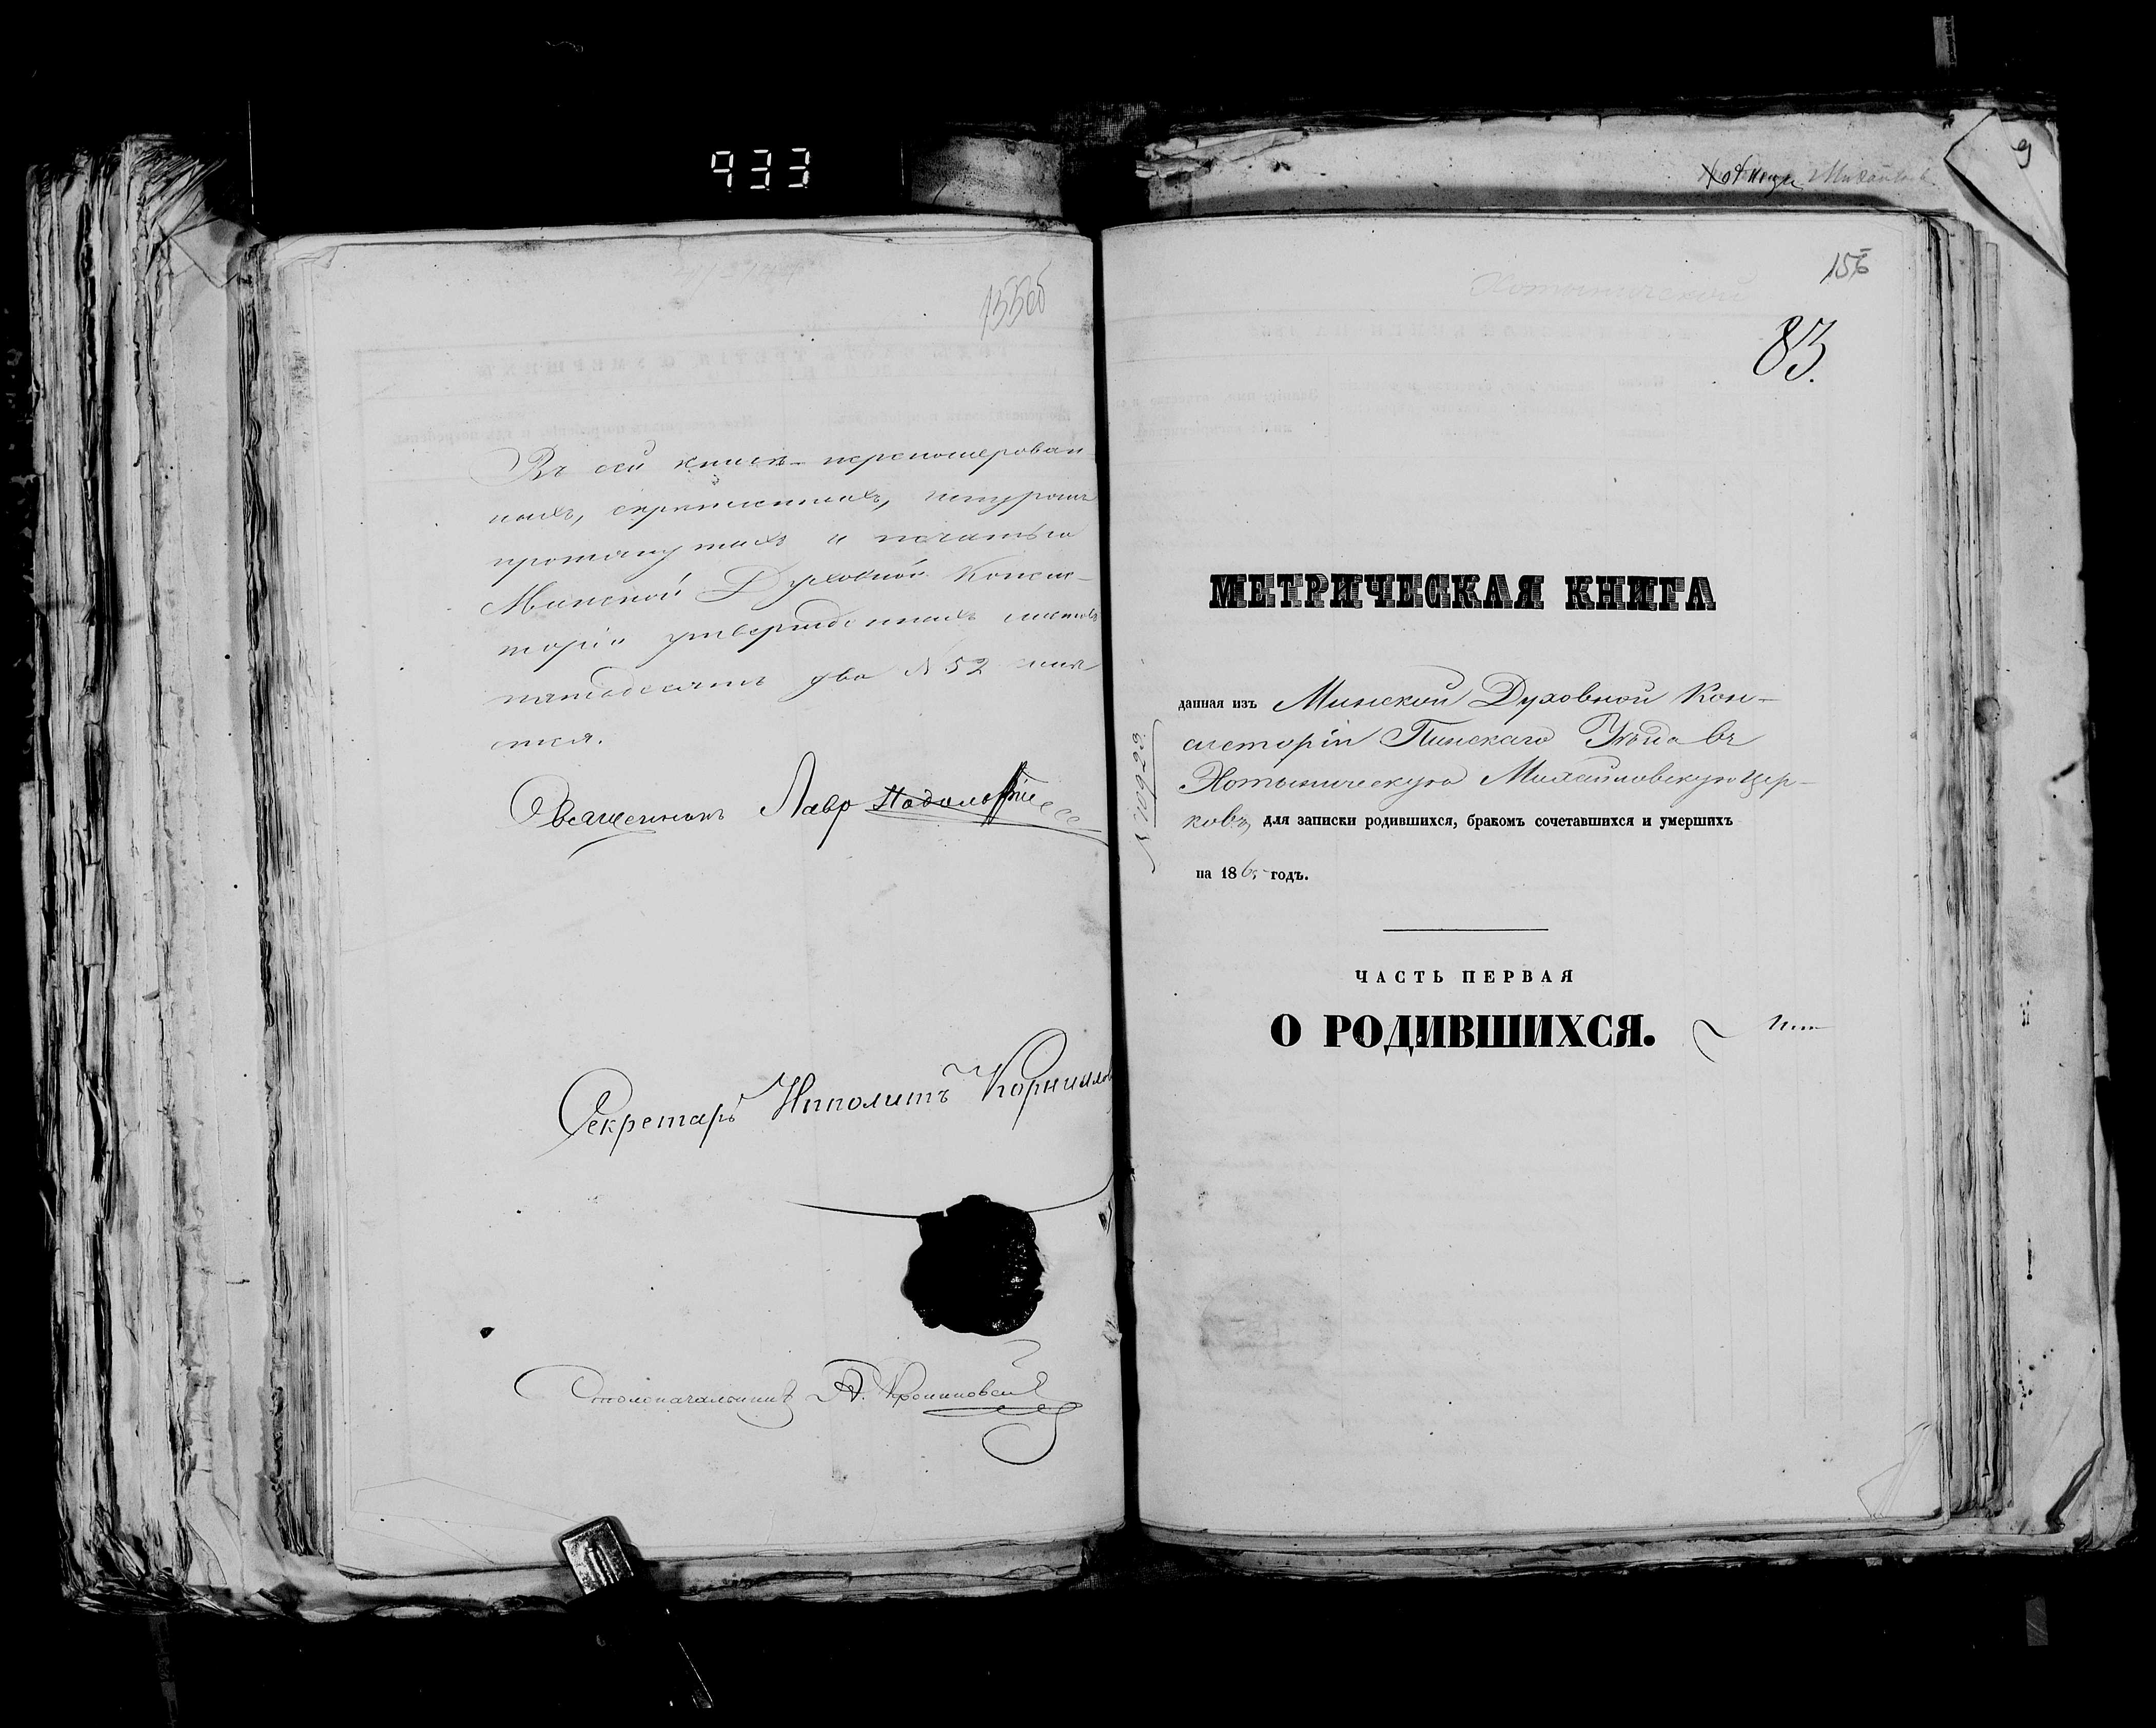 933
155об
Въ сей книгѣ перенумерован
ныхъ, скрѣпленныхъ, шнуромъ
протянутыхъ и печатью
Минской Духовной Консис-
торіи утвержденныхъ листовъ
пятьдесятъ два № 52 имѣ
ется.
Священникъ Лавр
Секретарь Ипполитъ Корнилов
Столоначальникъ
9
156
Хотыничской
83.
МЕТРИЧЕСКАЯ КНИГА
данная изъ Минской Духовной Кон-
систоріи Пинскаго Уѣзда въ
Хотыничскую Михайловскую цер-
ковь, для записки родившихся, бракомъ сочетавшихся и умершихъ
на 186 годъ.
№ 10923
ЧАСТЬ ПЕРВАЯ
О РОДИВШИХСЯ.